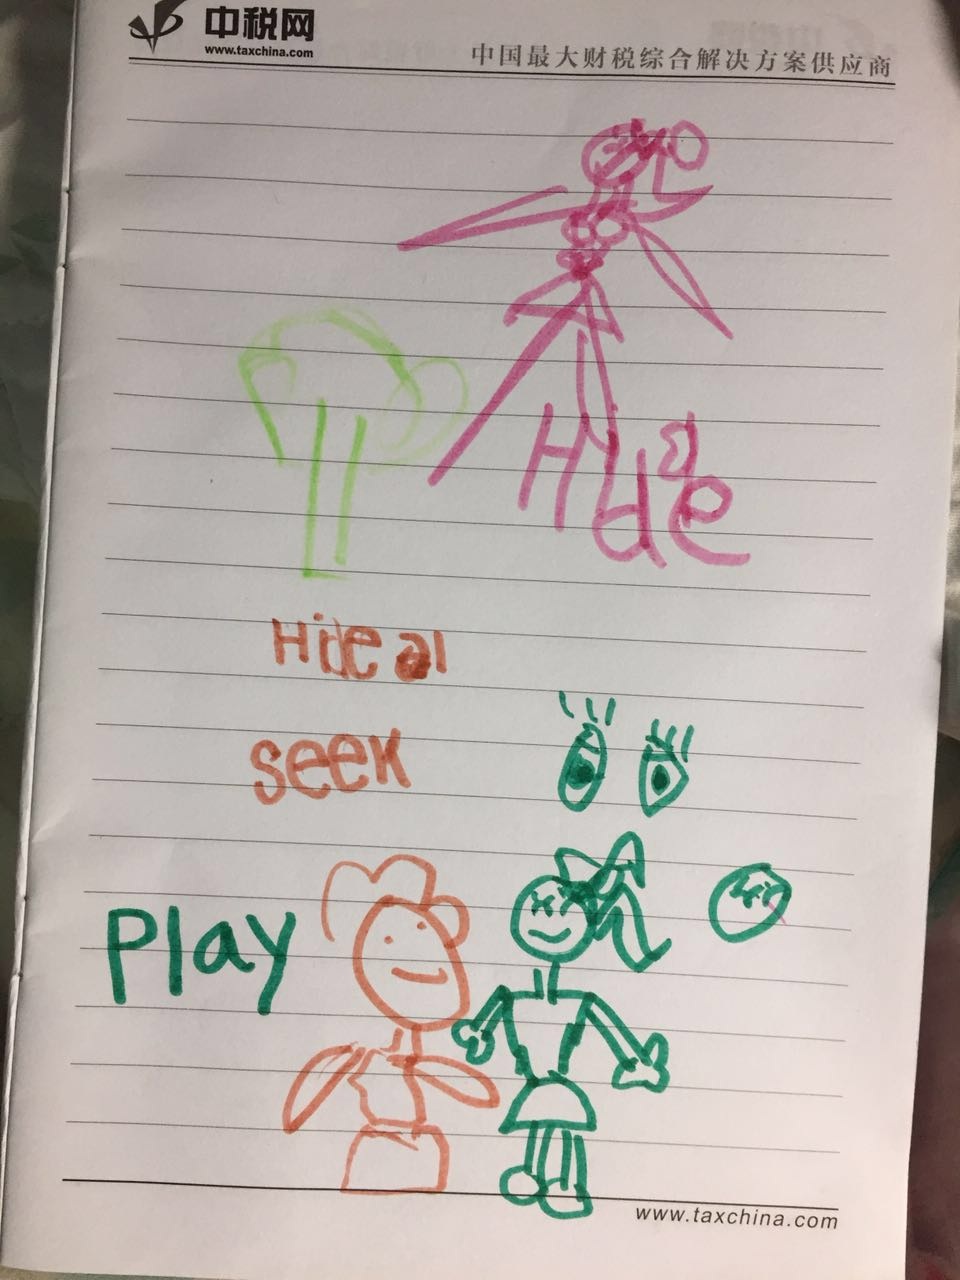 中税网
www.taxchina.com
中国最大财税综合解决方案供应商
Hide
Hide
seek
Play
www.taxchina.com